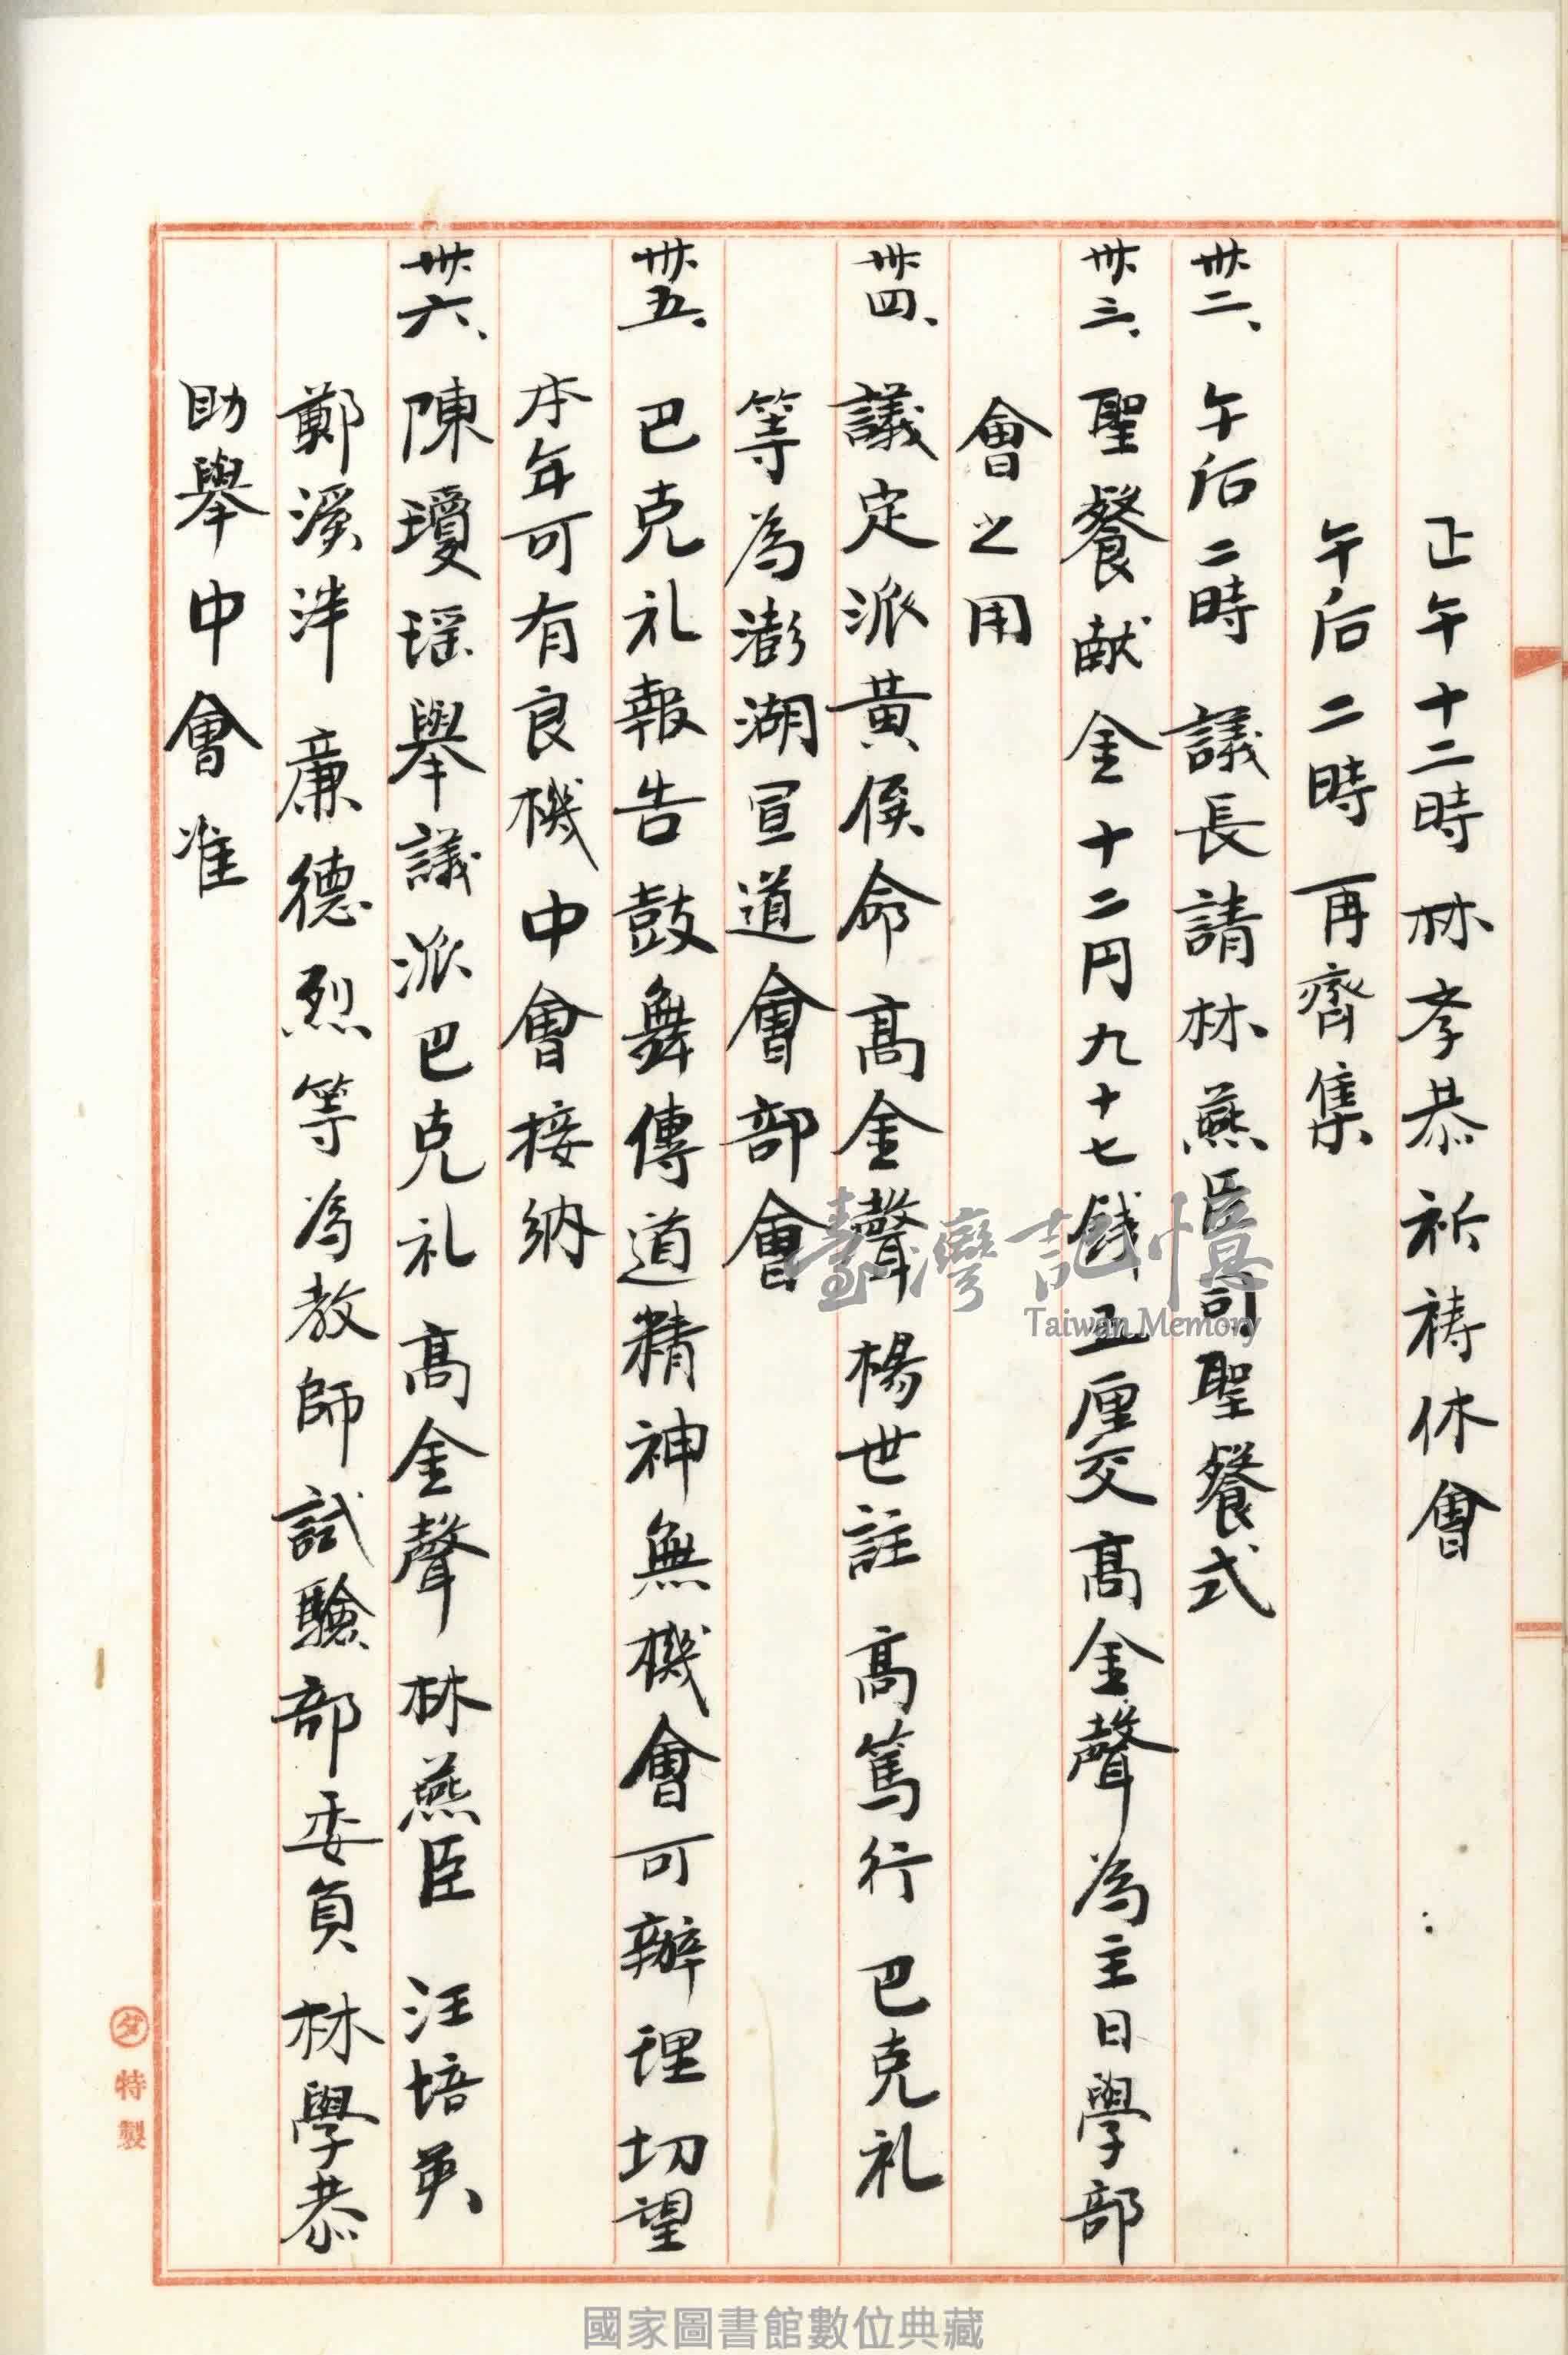 正午十二時林孝恭祈祷休會
午后二時再齊集
卅二、午后二時議長請林燕臣司聖餐式
卅三、聖餐献金十二円九十七錢五厘交高金聲為主日學部
會之用
卅四、議定派黃俟命高金聲楊世註高篤行巴克礼
等為澎湖宣道會部會
卅五、巴克礼報告鼓舞傳道精神無機會可辦理切望
本年可有良機中會接納
卅六、陳瓊瑶舉議派巴克礼高金聲林燕臣汪培英
鄭溪泮廉德烈等為教師試驗部委員林學恭
助舉中會准
臺灣記憶
Taiwan Memory
タ特製
國家圖書館數位典藏